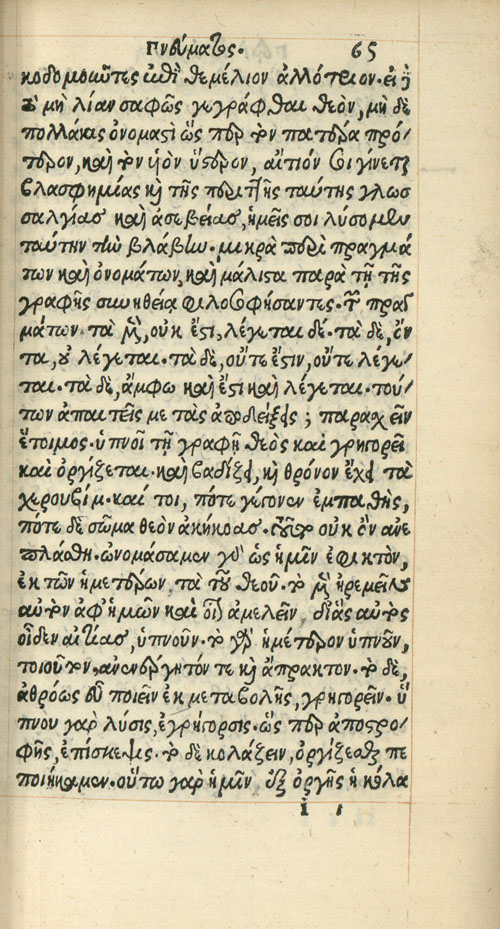 πνεύματος. 65
κοδομοῦντες ἐπὶ θεμέλιον ἀλλότριον. εἰ δὲ
τὸ μὴ λίαν σαφῶς γεγράφθαι θεὸν, μὴ δὲ
πολλάκις ὀνομαστὶ ὥσπερ τὸν πατέρα πρό-
τερον, καὶ τὸν υἱὸν ὕστερον, αἴτιόν σοι γίνεται
βλασφημίας καὶ τῆς περιττῆς ταύτης γλωσ
σαλγίας καὶ ἀσεβείας, ἡμεῖς σοι λύσομεν
ταύτην τὴν βλάβην. μικρὰ περὶ πραγμά
των καὶ ὀνομάτων, καὶ μάλιστα παρὰ τῇ τῆς
γραφῆς συνηθείᾳ φιλοσοφήσαντες. τῶν πραγ
μάτων τὰ μὲν, οὐκ ἔστι, λέγεται δέ. τὰ δὲ, ὄν
τα, οὐ λέγεται. τὰ δὲ, οὔτε ἔστιν, οὔτε λέγε-
ται. τὰ δὲ, ἄμφω καὶ ἔστι καὶ λέγεται. τού-
των ἀπαιτεῖς με τὰς ἀποδείξεις; παρασχεῖν
ἕτοιμος. ὑπνοῖ τῇ γραφῇ θεὸς καὶ γρηγορεῖ
καὶ ὀργίζεται. καὶ βαδίζει, καὶ θρόνον ἔχει τὰ
χερουβίμ. καί τοι, πότε γέγονεν ἐμπαθὴς,
πότε δὲ σῶμα θεὸν ἀκήκοας. τοῦτο οὐκ ὂν ἀνε
πλάσθη. ὠνομάσαμεν γὰρ ὡς ἡμῖν ἐφικτὸν,
ἐκ τῶν ἡμετέρων τὰ τοῦ θεοῦ. τὸ μὲν ἠρεμεῖν
αὐτὸν ἀφ' ἡμῶν καὶ οἷον ἀμελεῖν, δι' ἃς αὐτὸς
οἶδεν αἰτίας, ὑπνοῦν. τὸ γὰρ ἡμέτερον ὑπνοῦν,
τοιοῦτον. ἀνενέργητόν τε καὶ ἄπρακτον. τὸ δὲ,
ἀθρόως εὖ ποιεῖν ἐκ μεταβολῆς, γρηγορεῖν. ὕ
πνου γὰρ λύσις, ἐγρήγορσις. ὥσπερ ἀποστρο-
φῆς, ἐπίσκεψις. τὸ δὲ κολάζειν, ὀργίζεσθαι πε
ποιήκαμεν. οὕτω γὰρ ἡμῖν ἐξ ὀργῆς ἡ κόλα
i